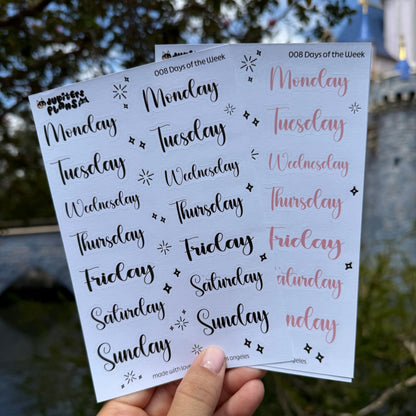 Jupiter Plans
008 Days of the Week
Monday Monday
Tuesday Tuesday
Wednesday Wednesday
Thursday Thursday
Friday Friday
Saturday Saturday
Sunday Sunday
made with love in los angeles
008 Days of the Week
Monday
Tuesday
Wednesday
Thursday
Friday
aturday
nday
geles